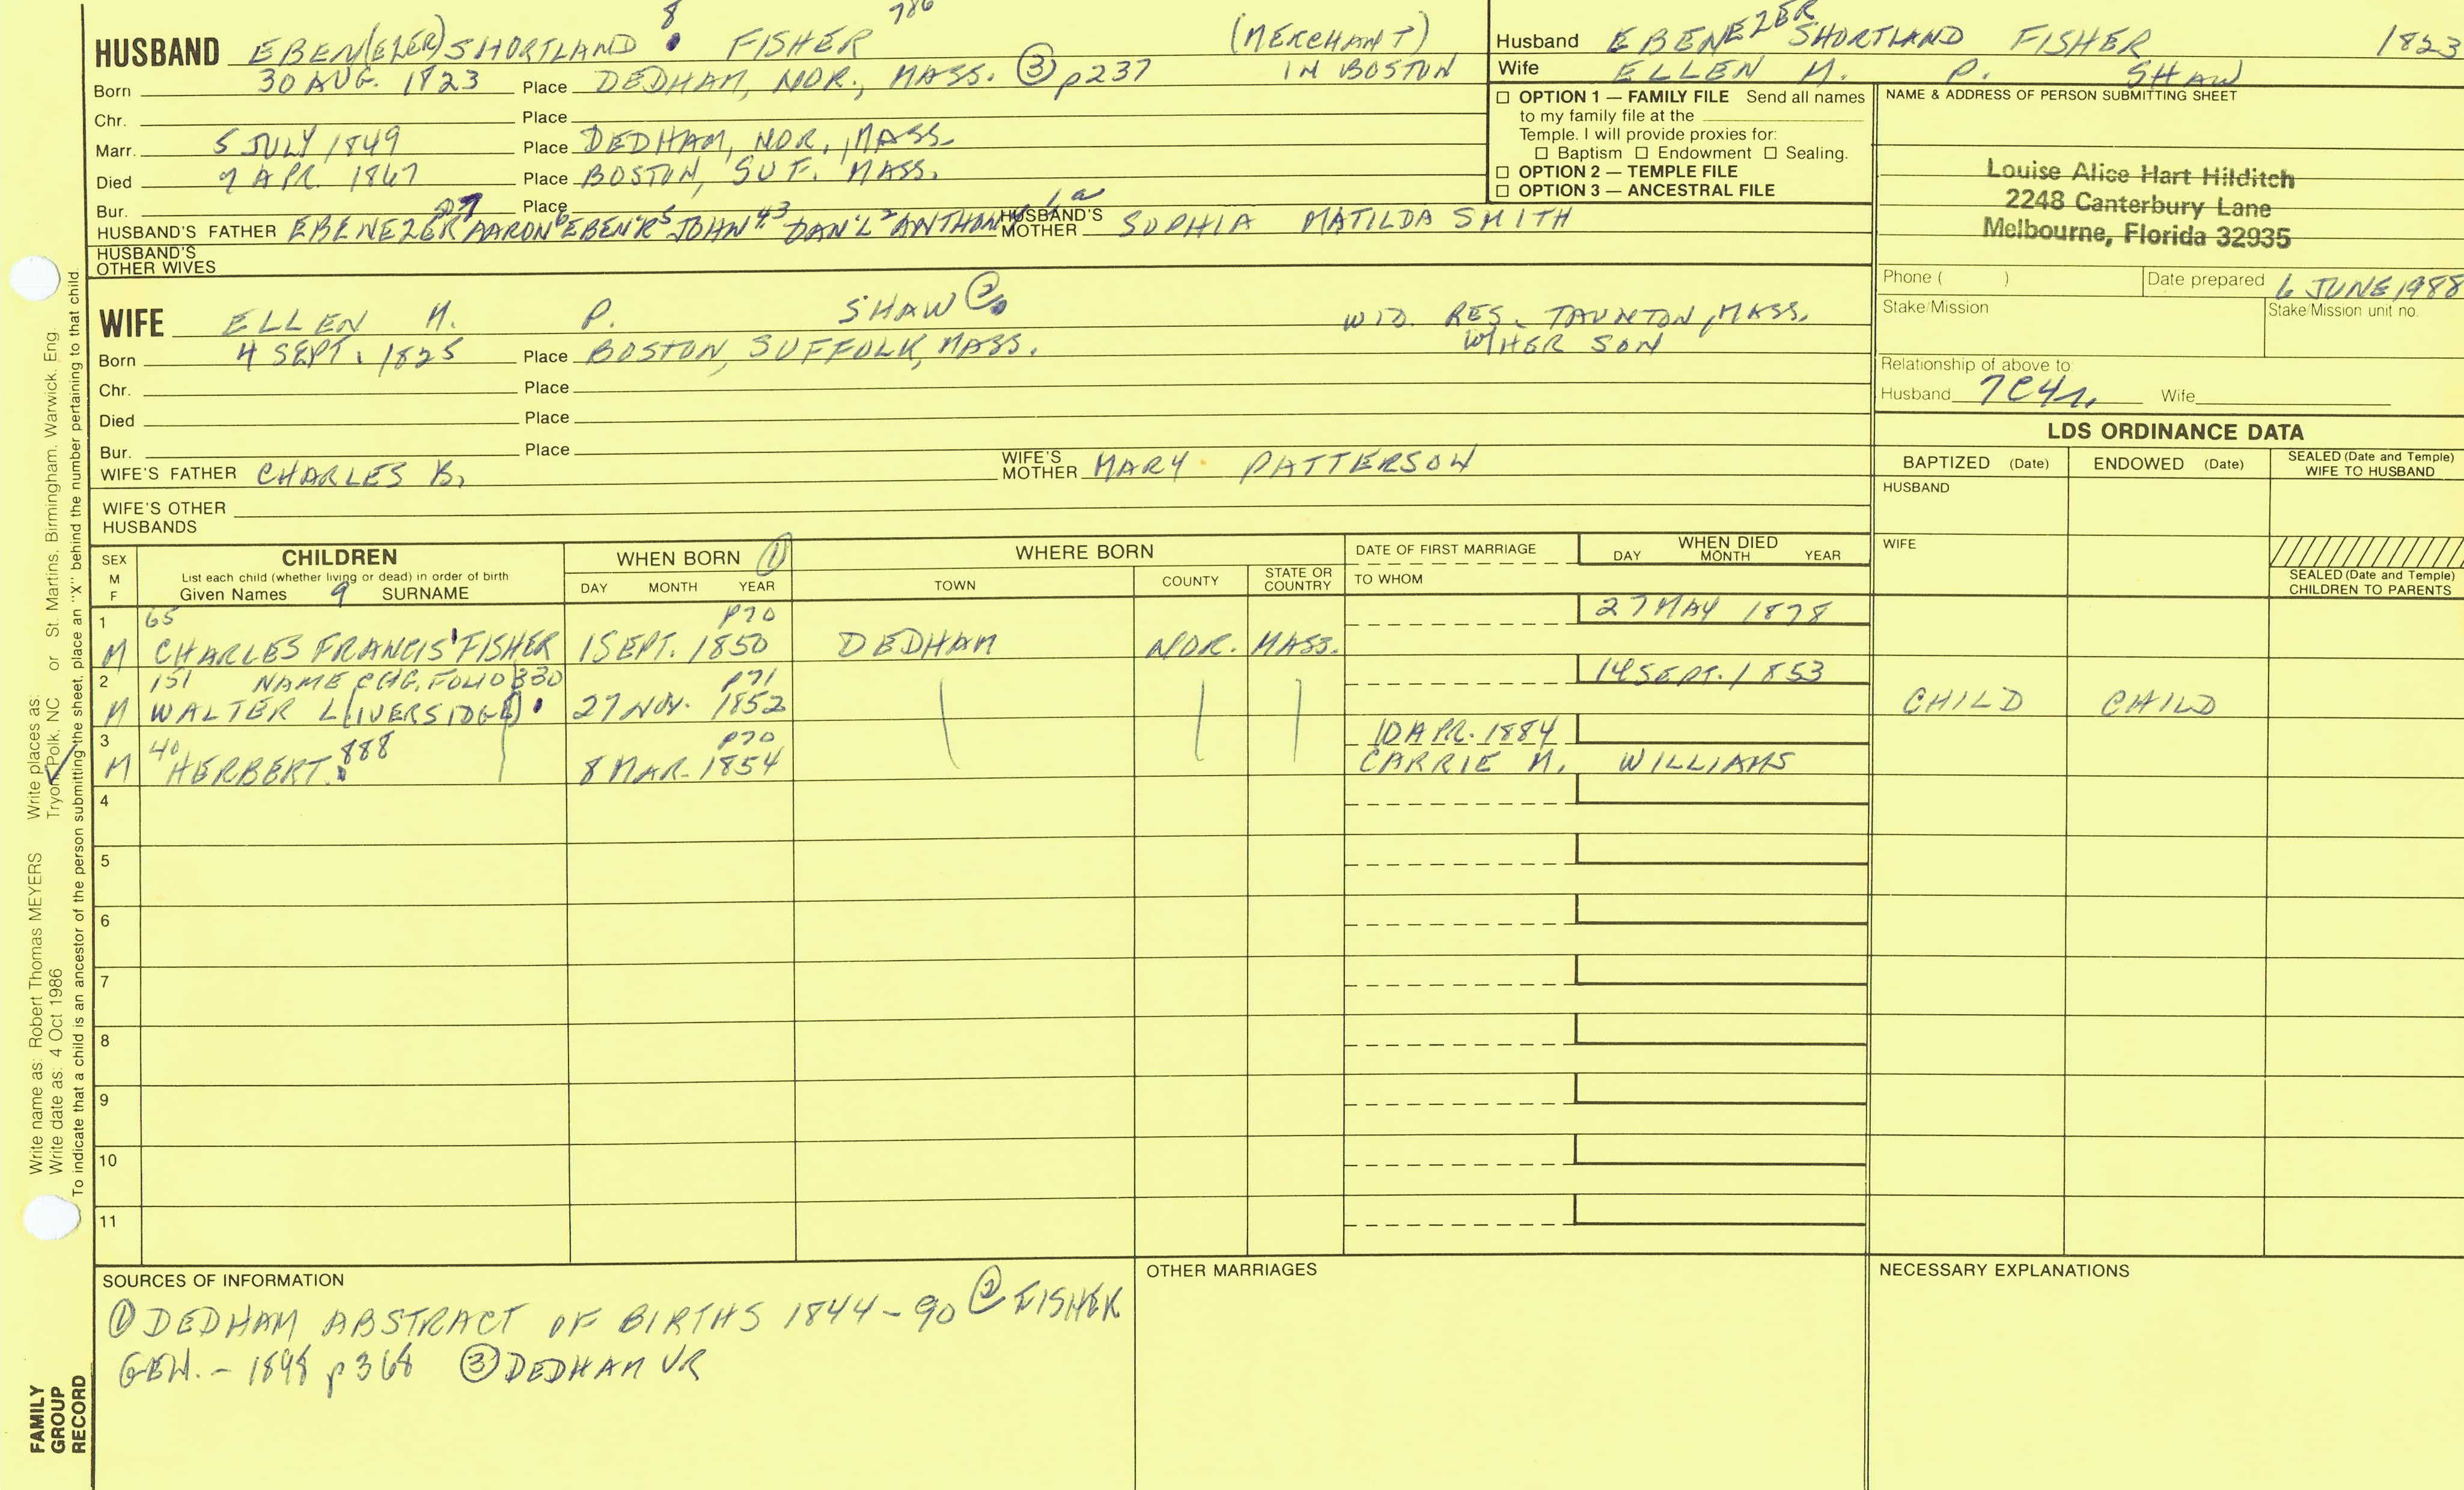 8 786
HUSBAND EBEN(EZER) SHORTLAND FISHER (MERCHANT)
Born 30 AUG. 1823 Place DEDHAM, NOR., MASS. ③ p237 IN BOSTON
Chr. Place
Marr. 5 JULY 1849 Place DEDHAM, NOR., MASS.
Died 7 APR. 1867 Place BOSTON, SUF. MASS.
Bur. Place
HUSBAND'S FATHER EBENEZER AARON 6 EBEN'R 5 JOHN 43 DAN'L 2 ANTHONY 1a HUSBAND'S MOTHER SOPHIA MATILDA SMITH
HUSBAND'S OTHER WIVES
WIFE ELLEN M. P. SHAW ② WID. RES. TAUNTON, MASS.
W/HER SON
Born 4 SEPT. 1825 Place BOSTON, SUFFOLK, MASS.
Chr. Place
Died Place
Bur. Place
WIFE'S FATHER CHARLES B. WIFE'S MOTHER MARY PATTERSON
WIFE'S OTHER HUSBANDS
Husband EBENEZER SHORTLAND FISHER 1823
Wife ELLEN M. P. SHAW
☐ OPTION 1 — FAMILY FILE Send all names
to my family file at the
Temple. I will provide proxies for:
☐ Baptism ☐ Endowment ☐ Sealing.
☐ OPTION 2 — TEMPLE FILE
☐ OPTION 3 — ANCESTRAL FILE
NAME & ADDRESS OF PERSON SUBMITTING SHEET
Louise Alice Hart Hilditch
2248 Canterbury Lane
Melbourne, Florida 32935
Phone ( ) Date prepared 6 JUNE 1988
Stake/Mission Stake/Mission unit no.
Relationship of above to:
Husband 7C4r. Wife
LDS ORDINANCE DATA
BAPTIZED (Date) ENDOWED (Date) SEALED (Date and Temple) WIFE TO HUSBAND
HUSBAND
WIFE
SEALED (Date and Temple) CHILDREN TO PARENTS
SEX M F CHILDREN WHEN BORN ① WHERE BORN DATE OF FIRST MARRIAGE WHEN DIED
List each child (whether living or dead) in order of birth
Given Names 9 SURNAME DAY MONTH YEAR TOWN COUNTY STATE OR COUNTRY TO WHOM DAY MONTH YEAR
1 65 p70 27 MAY 1878
M CHARLES FRANCIS FISHER 1 SEPT. 1850 DEDHAM NOR. MASS.
2 151 NAME CHG. FOLIO 330 p71 14 SEPT. 1853
M WALTER L(IVERSIDGE) 27 NOV. 1852 CHILD CHILD
3 40 888 p70 10 APR. 1884
M HERBERT 8 MAR. 1854 CARRIE M. WILLIAMS
4
5
6
7
8
9
10
11
SOURCES OF INFORMATION
① DEDHAM ABSTRACT OF BIRTHS 1844-90 ② FISHER
GEN. - 1898 p368 ③ DEDHAM VR
OTHER MARRIAGES
NECESSARY EXPLANATIONS
Write name as: Robert Thomas MEYERS Write places as:
Write date as: 4 Oct 1986 Tryon, Polk, NC or St. Martins, Birmingham, Warwick, Eng
To indicate that a child is an ancestor of the person submitting the sheet, place an "X" behind the number pertaining to that child.
FAMILY
GROUP
RECORD